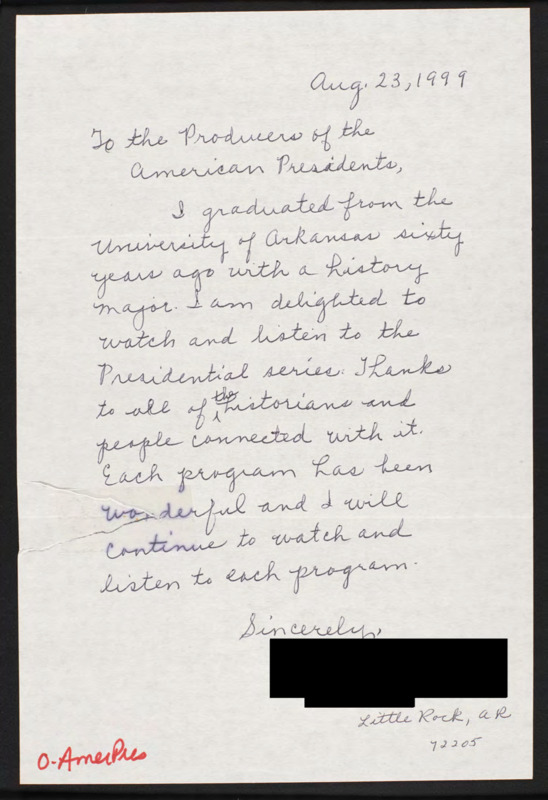 Aug. 23, 1999
To the Producers of the
American Presidents,
I graduated from the
University of Arkansas sixty
years ago with a history
major. I am delighted to
watch and listen to the
Presidential series. Thanks
to all of the historians and
people connected with it.
Each program has been
wonderful and I will
continue to watch and
listen to each program.
Sincerely,
Little Rock, AR
72205
O-AmerPres